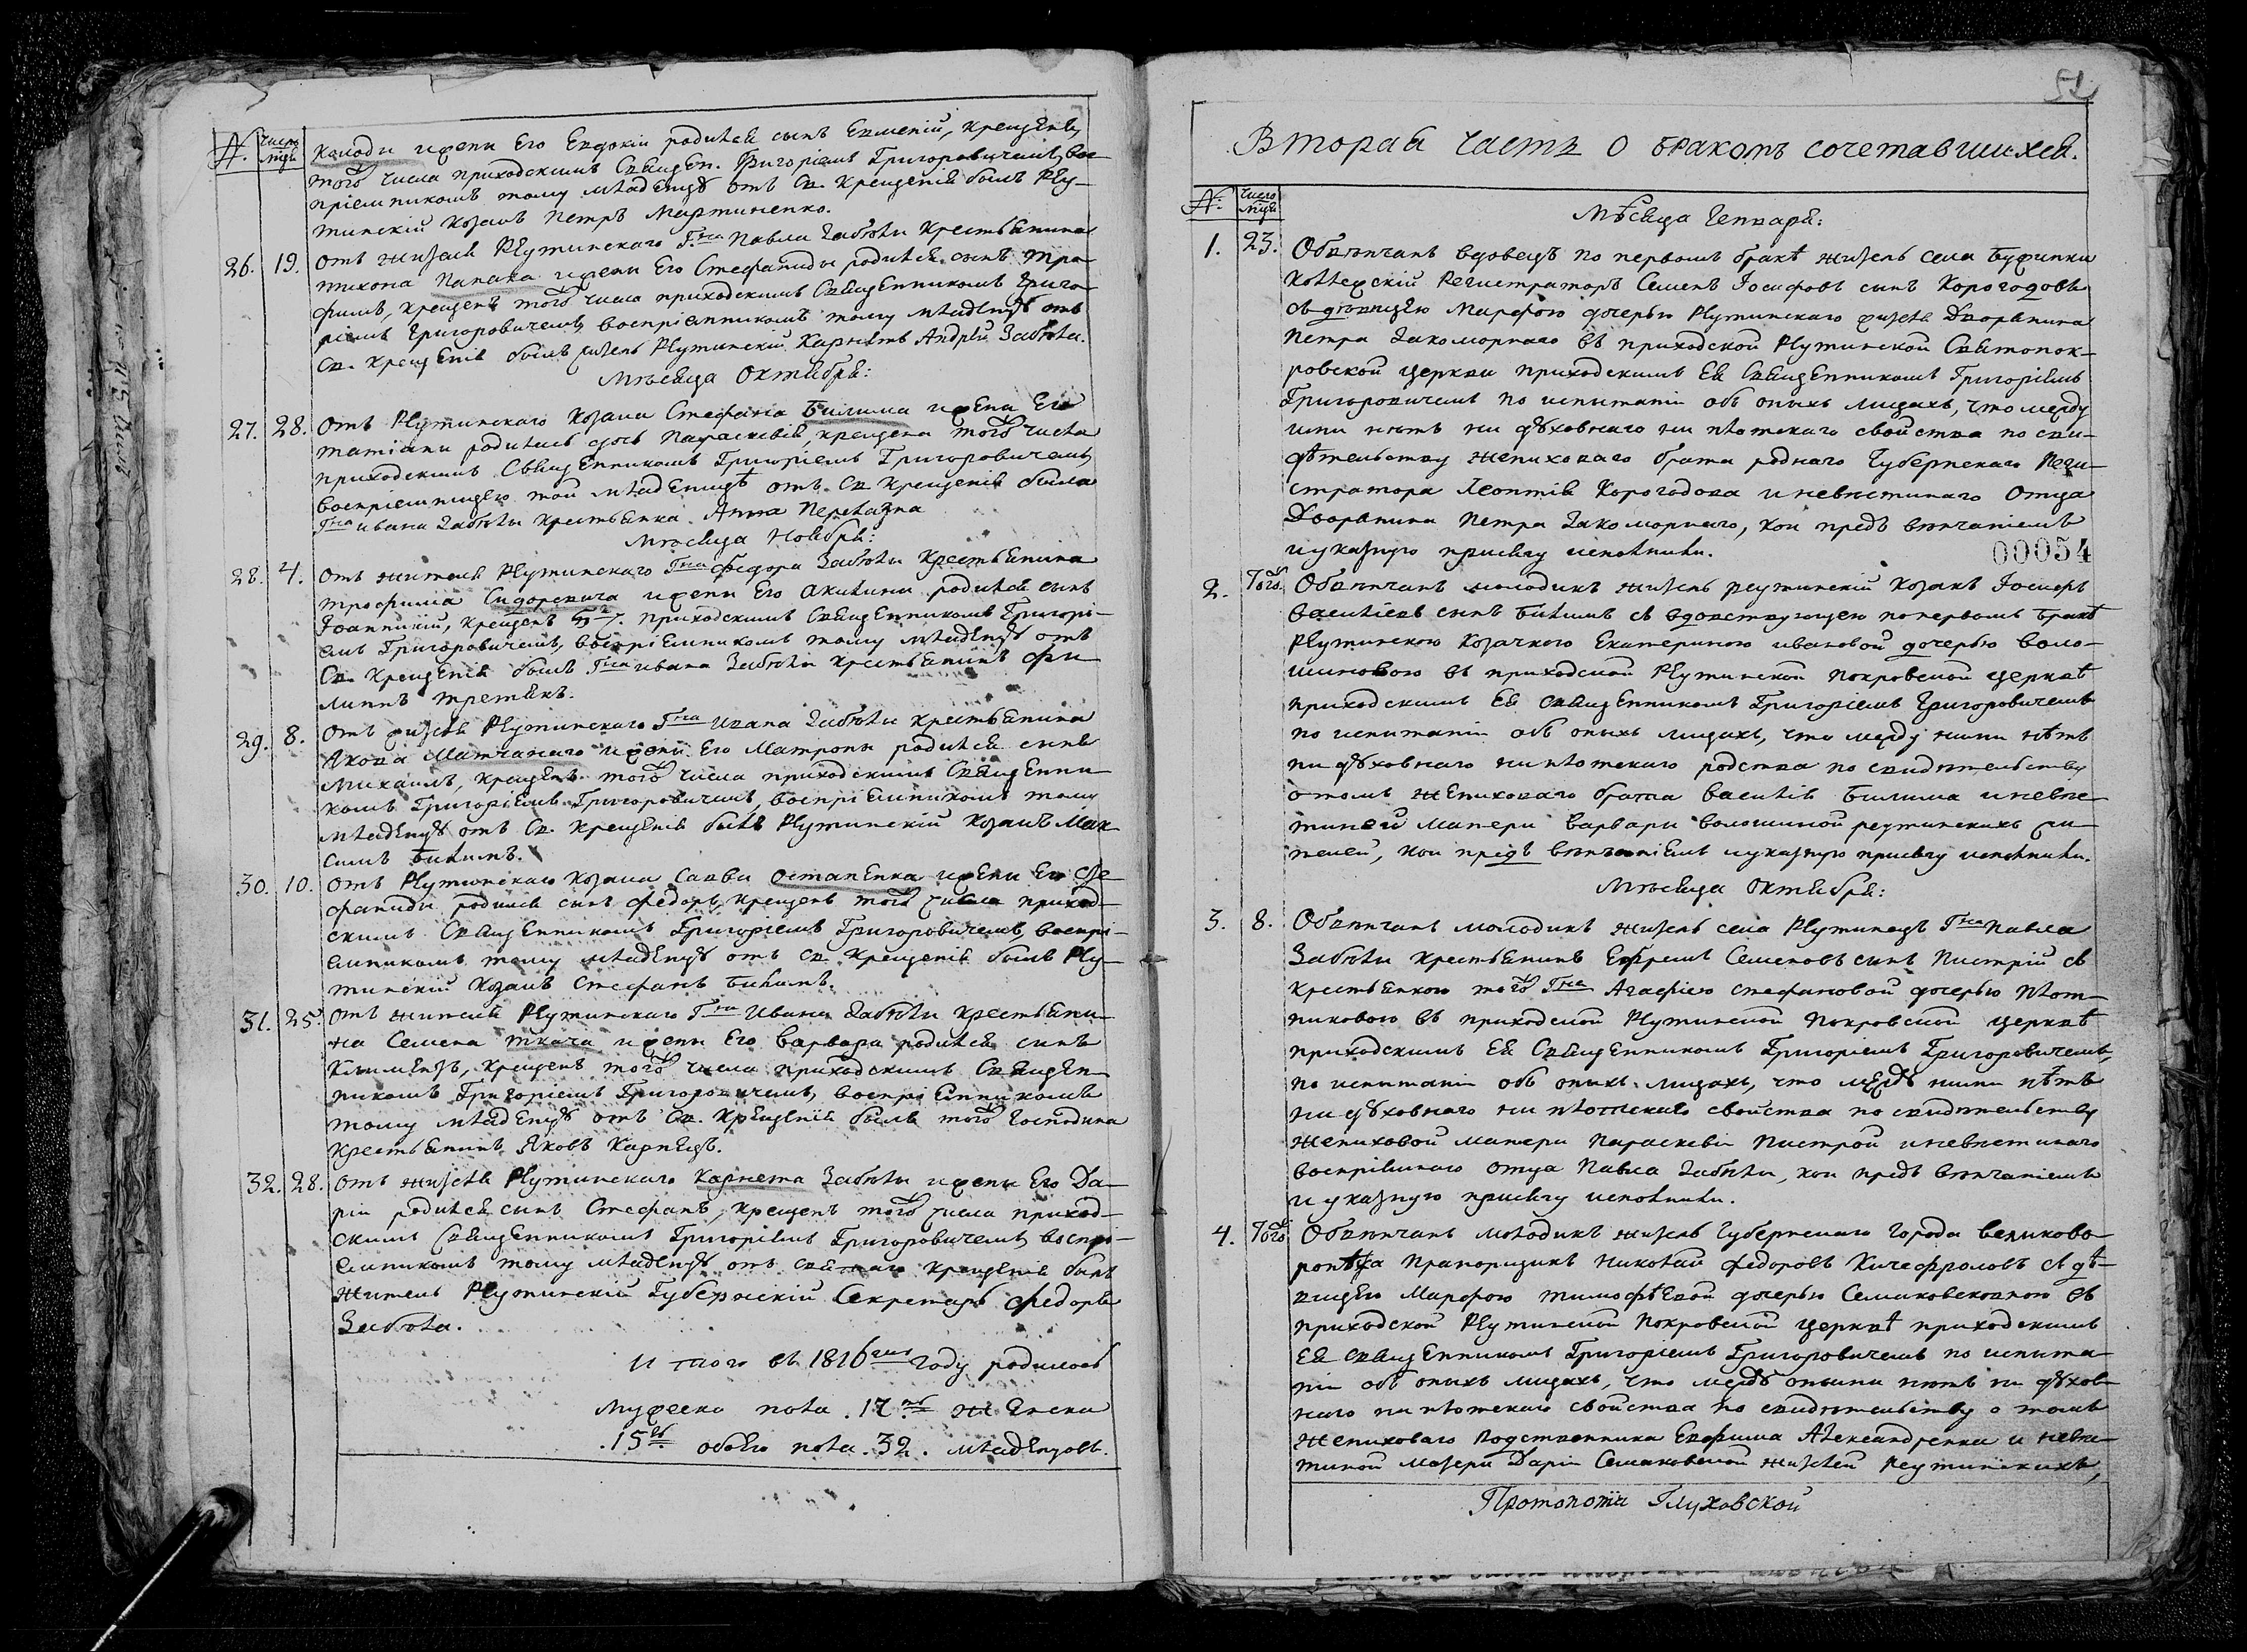 №. Число мѣся:
Колоди и жены Его Евдокіи родился сынъ Евменій, крещенъ
того числа приходскимъ Священ. Григоріемъ Григоровичемъ, вос-
пріемникомъ тому младенцу отъ Св. Крещенія былъ Реу-
тинскій Козакъ Петръ Мартиненко.
26. 19. Отъ жителя Реутинскаго Г-на Павла Забѣлы крестьянина
Его Стефаниды родился сынъ Тро-
фимъ, крещенъ того числа приходскимъ Священникомъ Григо-
ріемъ Григоровичемъ, воспріемникомъ тому младенцу отъ
Св. Крещенія былъ житель Реутинскій Корнетъ Андрей Забѣла.
Мѣсяца Октября:
27. 28. Отъ Реутинскаго Козака Стефана Билима и жены Его
Татіаны родилась дочь Параскевія, крещена того числа
приходскимъ Священникомъ Григоріемъ Григоровичемъ,
воспріемницею той младеницѣ отъ Св. Крещенія была
Г-на Ивана Забѣлы крестьянка Анна
Мѣсяца Ноября:
28. 4. Отъ жителя Реутинскаго Г-на Федора Забѣлы крестьянина
Трофима Сидоревича и жены Его Акилины родился сынъ
Іоанникій, крещенъ приходскимъ Священникомъ Григорі-
емъ Григоровичемъ, воспріемникомъ тому младенцу отъ
Св. Крещенія былъ Г-на Ивана Забѣлы крестьянинъ Фи-
липпъ Третякъ.
29. 8. Отъ жителя Реутинскаго Г-на Ивана Забѣлы крестьянина
Якова и жены Его Матроны родился сынъ
Михаилъ, крещенъ того числа приходскимъ Священни-
комъ Григоріемъ Григоровичемъ, воспріемникомъ тому
младенцу отъ Св. Крещенія былъ Реутинскій Козакъ Мак-
симъ Билимъ.
30. 10. Отъ Реутинскаго Козака Саввы Остапенка и жены Его Сте-
фаниды родился сынъ Федоръ, крещенъ того числа приход-
скимъ Священникомъ Григоріемъ Григоровичемъ, воспрі-
емникомъ тому младенцу отъ Св. Крещенія былъ Реу-
тинскій Козакъ Стефанъ Билимъ.
31. 25. Отъ жителя Реутинскаго Г-на Ивана Забѣлы крестьяни-
на Семена Ткача и жены Его Варвары родился сынъ
Климентъ, крещенъ того числа приходскимъ Священ-
никомъ Григоріемъ Григоровичемъ, воспріемникомъ
тому младенцу отъ Св. Крещенія былъ того Господина
крестьянинъ Яковъ Карпецъ.
32. 28. Отъ жителя Реутинскаго Корнета Забѣлы и жены Его Да-
ріи родился сынъ Стефанъ, крещенъ того числа приход-
скимъ Священникомъ Григоріемъ Григоровичемъ, воспрі-
емникомъ тому младенцу отъ святаго Крещенія былъ
житель Реутинскій Губернскій Секретарь Федоръ
Забѣла.
И того въ 1816 году родилось
Мужеска пола 17. женска
15. обоего пола 32. младенцовъ.
52
Вторая часть о бракомъ сочетавшихся.
№: Число мѣся:
Мѣсяца Генваря:
1. 23. Обвѣнчанъ вдовецъ по первомъ бракѣ житель села
Коллежскій Регистраторъ Семенъ Іосифовъ сынъ Корогодовъ
съ дѣвицею Марфою дочерью Реутинскаго жителя Дворянина
Петра Закоморнаго въ приходской Реутинской Святопок-
ровской церкви приходскимъ Ея Священникомъ Григоріемъ
Григоровичемъ по испытаніи объ оныхъ лицахъ, что между
ими нѣтъ ни духовнаго ни плотскаго свойства по сви-
дѣтельству жениховаго брата роднаго Губернскаго Реги-
стратора Леонтія Корогодова и невѣстинаго Отца
Дворянина Петра Закоморнаго, кои предъ вѣнчаніемъ
и указную присягу исполнили.
00054
2. Того Обвѣнчанъ молодикъ житель реутинскій Козакъ Іосифъ
Василіевъ сынъ Билимъ съ вдовствующею по первомъ бракѣ
Реутинскою Козачкою Екатериною Ивановой дочерью Воло-
шиновою въ приходской Реутинской Покровской церквѣ
приходскимъ Ея Священникомъ Григоріемъ Григоровичемъ
по испытаніи объ оныхъ лицахъ, что между ними нѣтъ
ни духовнаго ни плотскаго родства по свидѣтельству
о томъ жениховаго брата Василія Билима и невѣс-
тиной матери Варвары Волошиной реутинскихъ жи-
телей, кои предъ вѣнчаніемъ и указную присягу исполнили.
Мѣсяца Октября:
3. 8. Обвѣнчанъ молодикъ житель села Реутинецъ Г-на Павла
Забѣлы крестьянинъ Ефремъ Семеновъ сынъ Пистрій съ
крестьянкою того Г-на Агафіею Стефановой дочерью Плот-
никовою въ приходской Реутинской Покровской церквѣ
приходскимъ Ея Священникомъ Григоріемъ Григоровичемъ,
по испытаніи объ оныхъ лицахъ, что между ними нѣтъ
ни духовнаго ни плотскаго свойства по свидѣтельству
жениховой матери Параскевіи Пистрой и невѣстинаго
воспріемнаго отца Павла Забѣлы, кои предъ вѣнчаніемъ
и указную присягу исполнили.
4. Того Обвѣнчанъ молодикъ житель Губернскаго города
Прапорщикъ Николай Федоровъ съ дѣ-
вицею Марфою Тимофѣевой дочерью Семяковсковною въ
приходской Реутинской Покровской церквѣ приходскимъ
Ея священникомъ Григоріемъ Григоровичемъ по испыта-
ніи объ оныхъ лицахъ, что между оными нѣтъ ни духов-
наго ни плотскаго свойства по свидѣтельству о томъ
жениховаго Родственника Евфима Александренка и невѣс-
тиной матери Даріи Семяковской жителей реутинскихъ,
Протопопіи Глуховской